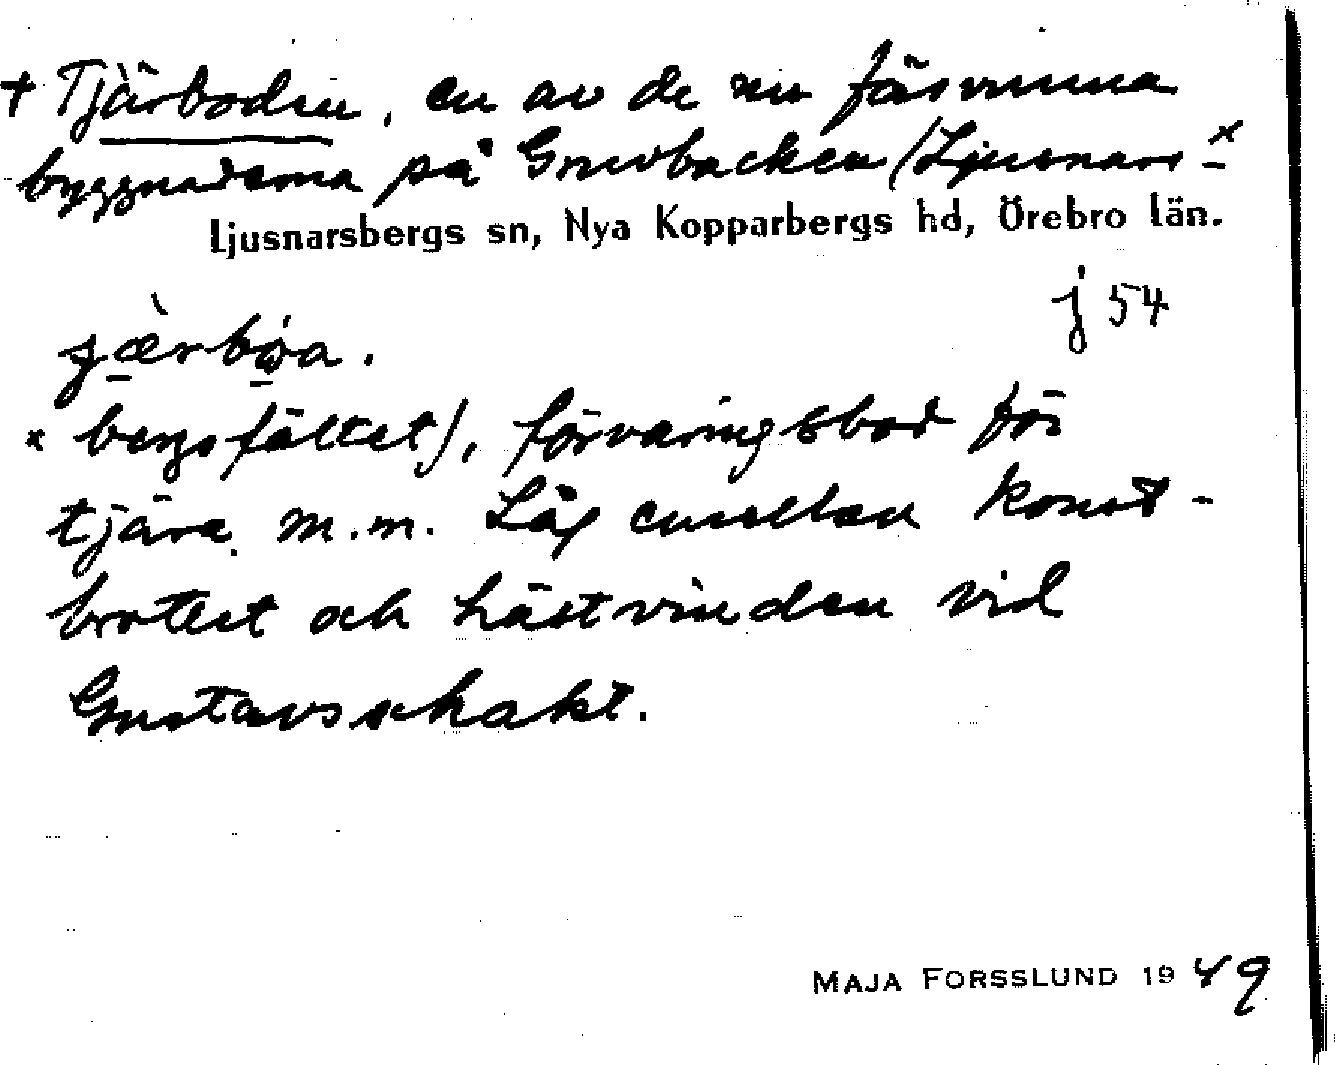 † Tjärboden, en av de nu försvunna
byggnaderna på Gruvbacken (Ljusnars- x
Ljusnarsbergs sn, Nya Kopparbergs hd, Örebro län.
j 54
jæ̀rbǿa.
x bergsfältet), förvaringsbod för
tjära m.m. Låg emellan konst-
brottet och hästvinden vid
Gustavsschakt.
MAJA FORSSLUND 1949